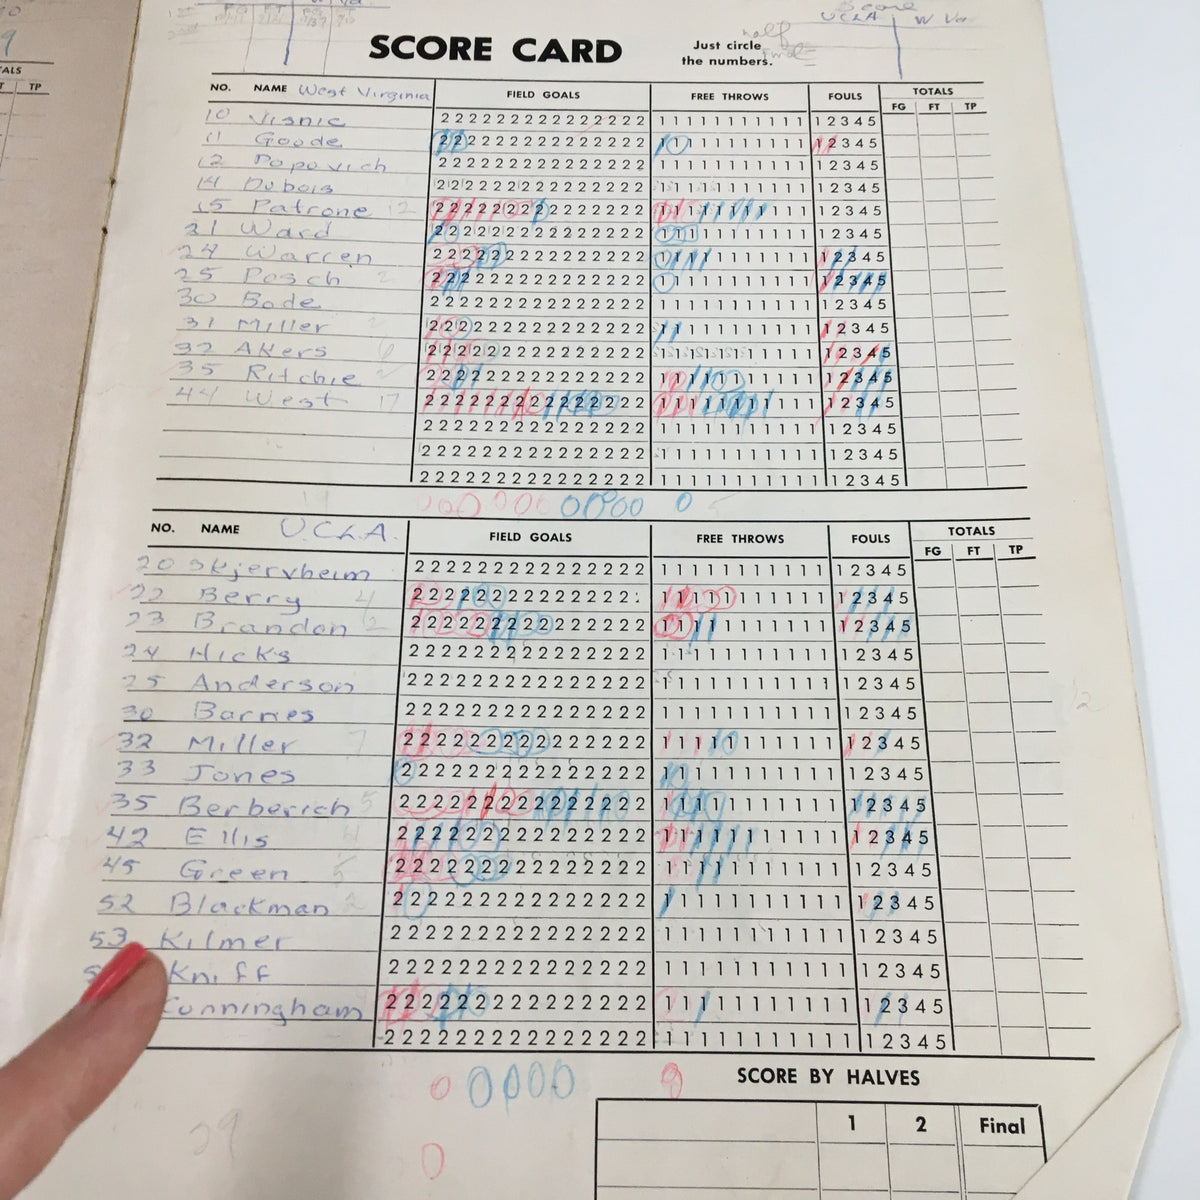 9
ALS
T TP
FG FT
Score
UCLA W Va
half
SCORE CARD
Just circle
the numbers.
NO. NAME West Virginia FIELD GOALS FREE THROWS FOULS TOTALS
FG FT TP
10 Visnic 2222222222222222 11111111111 12345
11 Goode 2222222222222222 11111111111 12345
12 Popovich 2222222222222222 11111111111 12345
14 Dubois 2222222222222222 11111111111 12345
15 Patrone 12 2222222222222222 11111111111 12345
21 Ward 2222222222222222 11111111111 12345
24 Warren 2222222222222222 11111111111 12345
25 Posch 2 2222222222222222 11111111111 12345
30 Bode 2222222222222222 11111111111 12345
31 Miller 2 2222222222222222 11111111111 12345
32 Akers 6 2222222222222222 11111111111 12345
35 Ritchie 2222222222222222 11111111111 12345
44 West 17 2222222222222222 11111111111 12345
2222222222222222 11111111111 12345
2222222222222222 11111111111 12345
2222222222222222 11111111111 12345
NO. NAME U.C.L.A. FIELD GOALS FREE THROWS FOULS TOTALS
FG FT TP
20 Skjervheim 2222222222222222 11111111111 12345
22 Berry 4 2222222222222222 11111111111 12345
23 Brandon 2 2222222222222222 11111111111 12345
24 Hicks 2222222222222222 11111111111 12345
25 Anderson 2222222222222222 11111111111 12345
30 Barnes 2222222222222222 11111111111 12345
32 Miller 7 2222222222222222 11111111111 12345
33 Jones 2222222222222222 11111111111 12345
35 Berberich 5 2222222222222222 11111111111 12345
42 Ellis 4 2222222222222222 11111111111 12345
45 Green 5 2222222222222222 11111111111 12345
52 Blackman 2 2222222222222222 11111111111 12345
53 Kilmer 2222222222222222 11111111111 12345
Kniff 2222222222222222 11111111111 12345
Cunningham 2222222222222222 11111111111 12345
2222222222222222 11111111111 12345
29
SCORE BY HALVES
1 2 Final